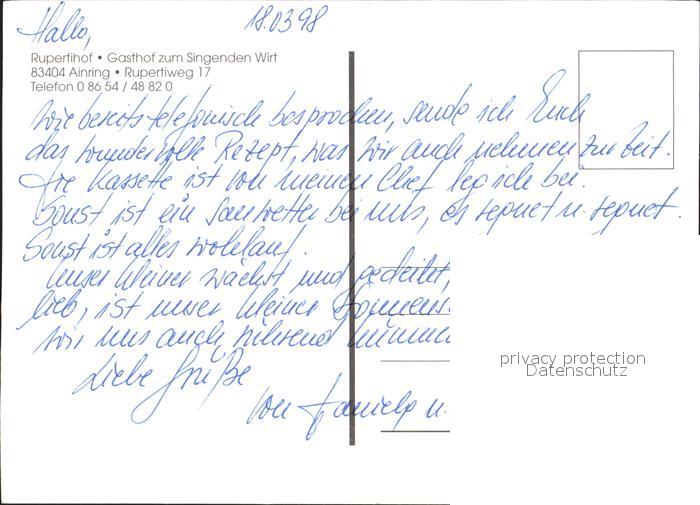 Hallo,
18.03.98
Rupertihof • Gasthof zum Singenden Wirt
83404 Ainring • Rupertiweg 17
Telefon 0 86 54 / 48 82 0
wie bereits telefonisch besprochen, sende ich Euch
das wundervolle Rezept, was wir auch nehmen zur Zeit.
Die Kassette ist von meinen Chef leg ich bei.
Sonst ist ein Sauwetter bei uns, es regnet u. regnet.
Sonst ist alles wohlauf.
Unser kleiner wächst und gedeiht,
lieb, ist unser kleiner
wir uns auch rührend
Liebe Grüße
von Daniela u.
privacy protection
Datenschutz